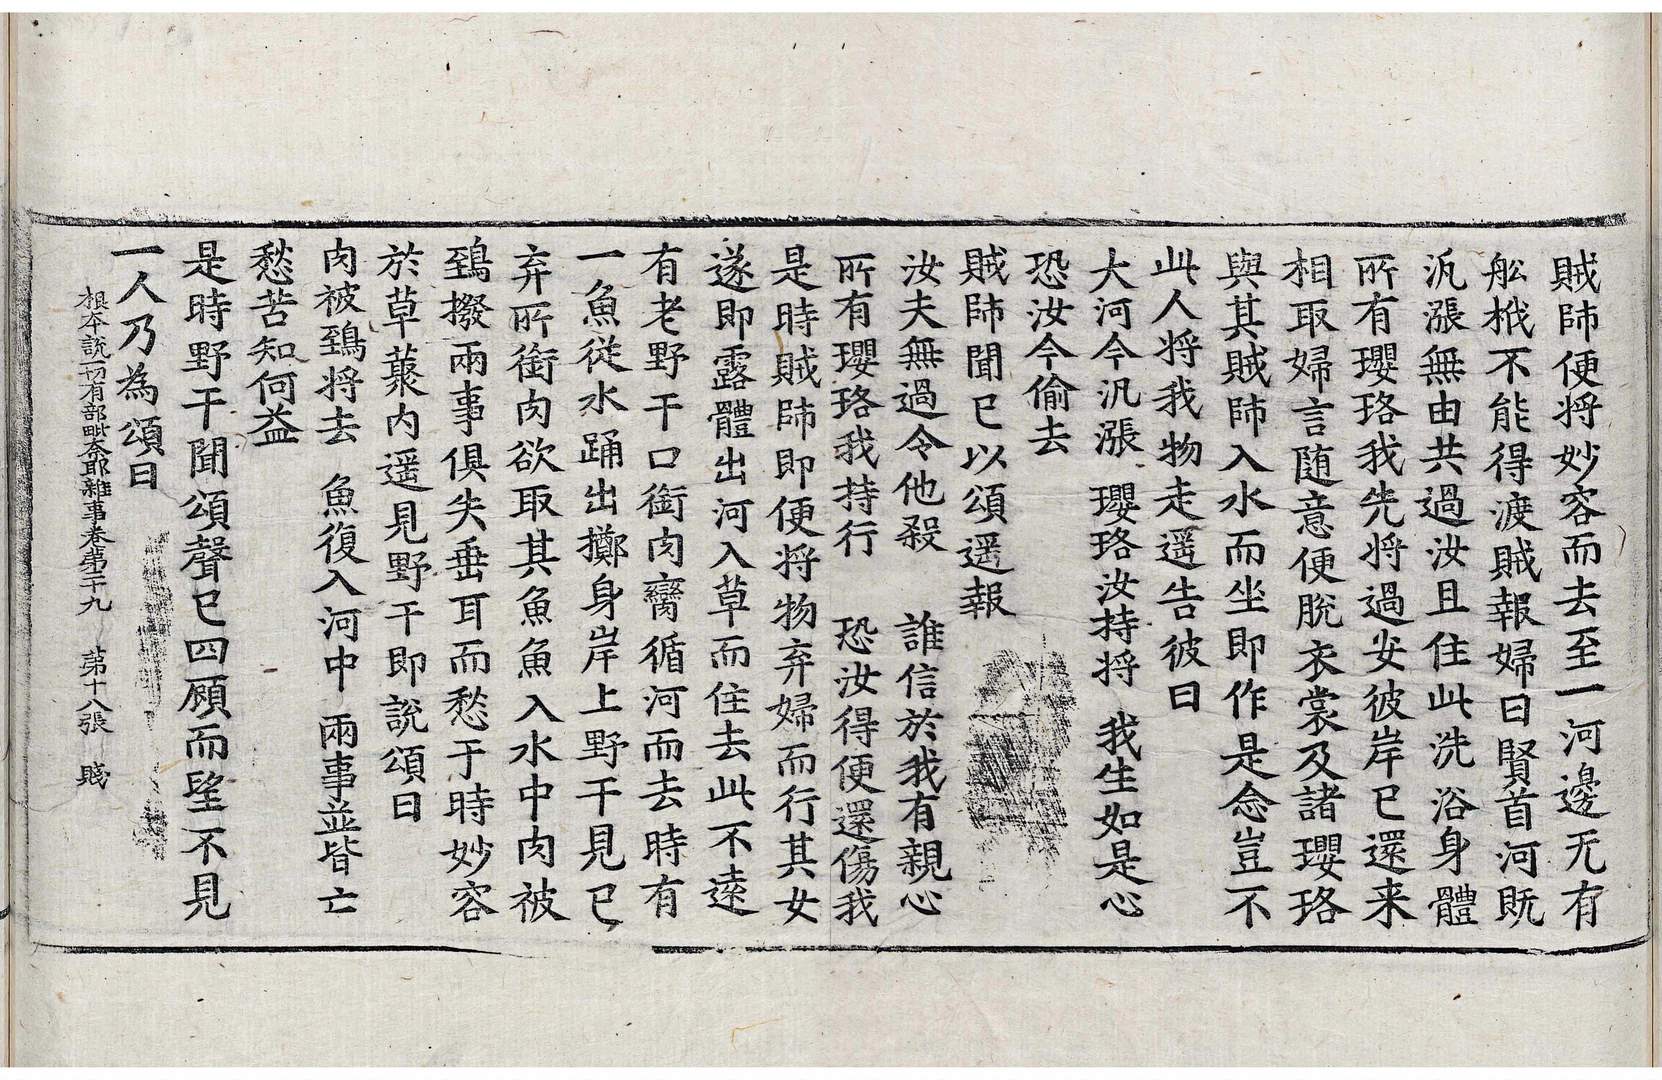 賊師便將妙容而去至一河邊无有
舩栰不能得渡賊報婦曰賢首河既
汎漲無由共過汝且住此洗浴身體
所有瓔珞我先將過安彼岸已還来
相取婦言随意便脫衣裳及諸瓔珞
與其賊師入水而坐即作是念豈不
此人將我物走遥告彼曰
大河今汎漲 瓔珞汝持將 我生如是心
恐汝今偷去
賊師聞已以頌遥報
汝夫無過令他殺 誰信於我有親心
所有瓔珞我持行 恐汝得便還傷我
是時賊師即便將物弃婦而行其女
遂即露體出河入草而住去此不遠
有老野干口銜肉臠循河而去時有
一魚從水踊出擲身岸上野干見已
弃所銜肉欲取其魚魚入水中肉被
鵄撥兩事俱失垂耳而愁于時妙容
於草藂内遥見野干即說頌曰
肉被鵄將去 魚復入河中 兩事並皆亡
愁苦知何益
是時野干聞頌聲已四顧而望不見
一人乃為頌曰
根本說一切有部毗奈耶雜事卷第二十九 第十八張 賤